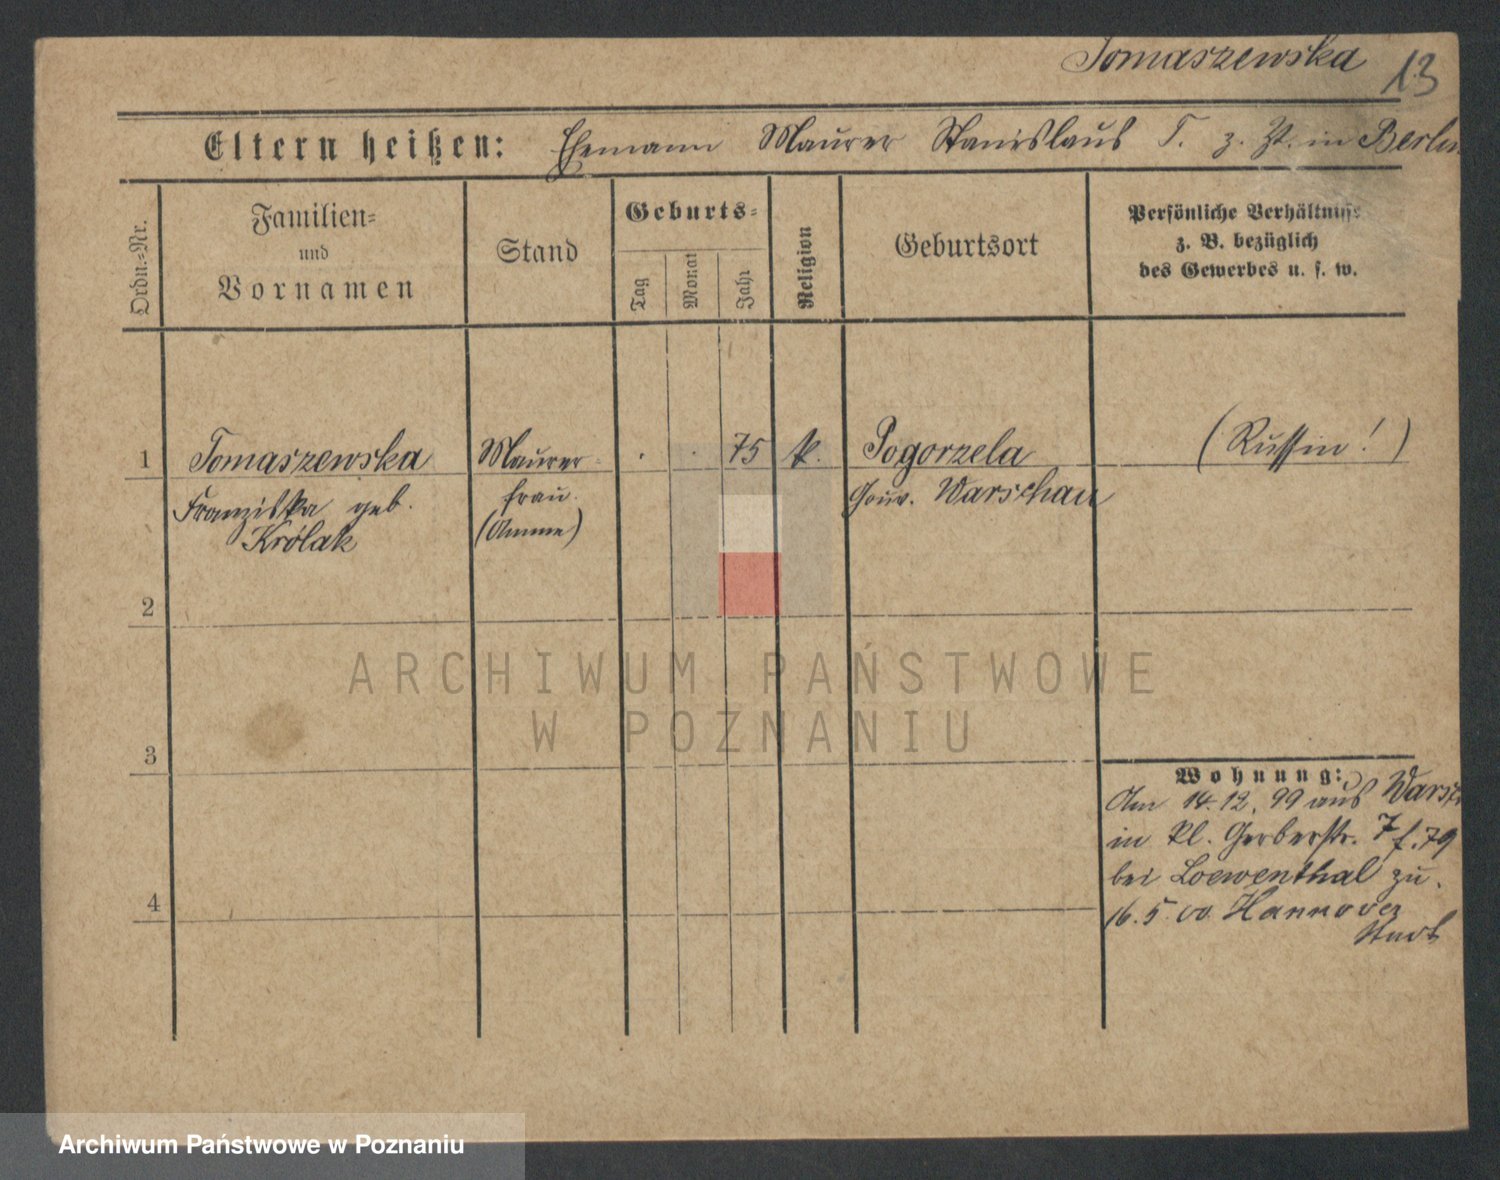 Tomaszewska 13
Eltern heißen: Ehemann Maurer Stanislaus T. z. Zt. in Berlin
Ordn.-Nr.
Familien-
und
Vornamen
Stand
Geburts-
Tag
Monat
Jahr
Religion
Geburtsort
Persönliche Verhältnisse
z. B. bezüglich
des Gewerbes u. s. w.
1 Tomaszewska Maurer- 75 k. Pogorzela (Russin!)
Franziska geb. frau. Gouv. Warschau
Królak (Amme)
2
ARCHIWUM PAŃSTWOWE
W POZNANIU
3
Wohnung:
Am 14.12.99 aus
in Kl. Gerberstr. 7 f. 79
bei Loewenthal zu.
4
16.5.00 Hannover
Archiwum Państwowe w Poznaniu